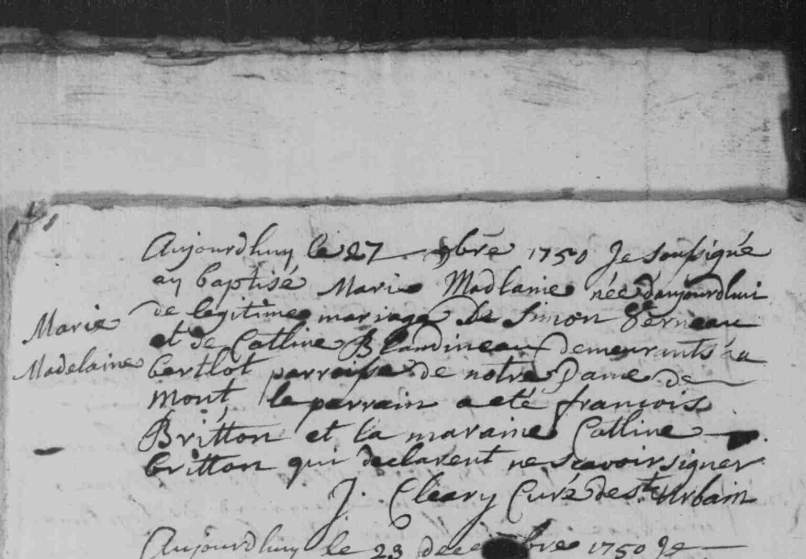 Aujourdhuy le 27 9bre 1750 Je soussigné
ay baptisé Marie Madlaine née d'aujourdhui
de legitime mariage de Simon
Marie
et de Catline Blandineau demeurants au
Madelaine
bertlot parroisse de notre Dame de
Mont, le parrain a eté francois
Britton et la maraine Catline
britton qui declarent ne scavoir signer
J. Cleary Curé de St Urbain
Aujourdhuy le 23 decembre 1750 Je